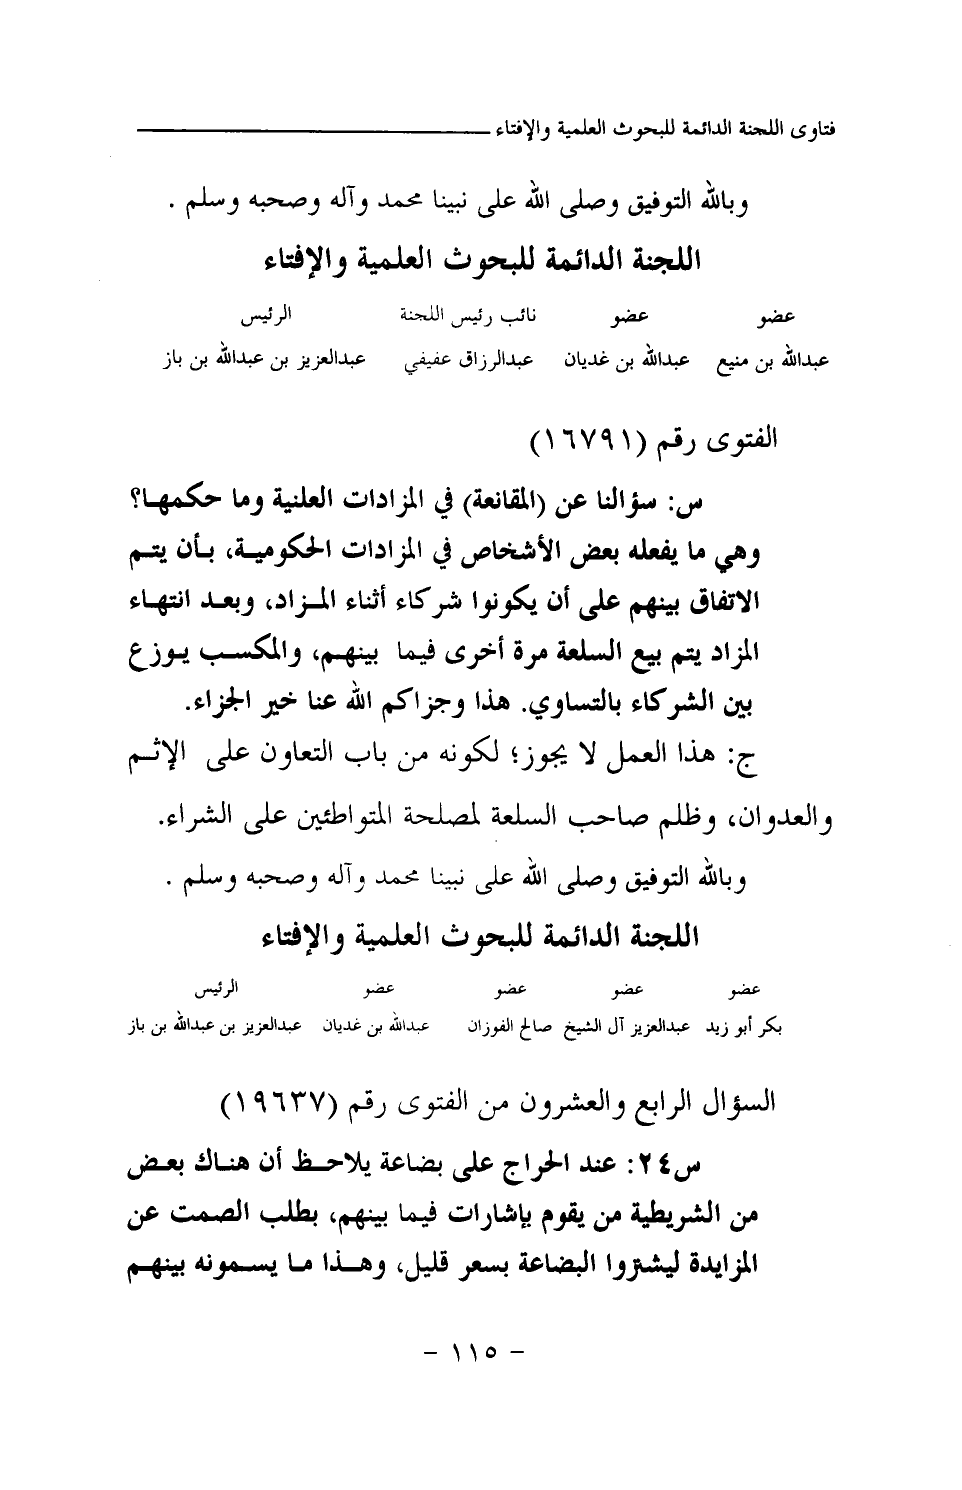 فتاوى اللجنة الدائمة للبحوث العلمية والإفتاء
وبالله التوفيق وصلى الله على نبينا محمد وآله وصحبه وسلم .
اللجنة الدائمة للبحوث العلمية والإفتاء
عضو عضو نائب رئيس اللجنة الرئيس
عبدالله بن منيع عبدالله بن غديان عبدالرزاق عفيفي عبدالعزيز بن عبدالله بن باز
الفتوى رقم (١٦٧٩١)
س: سؤالنا عن (المقانعة) في المزادات العلنية وما حكمها؟
وهي ما يفعله بعض الأشخاص في المزادات الحكومية، بأن يتم
الاتفاق بينهم على أن يكونوا شركاء أثناء المزاد، وبعد انتهاء
المزاد يتم بيع السلعة مرة أخرى فيما بينهم، والمكسب يوزع
بين الشركاء بالتساوي. هذا وجزاكم الله عنا خير الجزاء.
ج: هذا العمل لا يجوز؛ لكونه من باب التعاون على الإثم
والعدوان، وظلم صاحب السلعة لمصلحة المتواطئين على الشراء.
وبالله التوفيق وصلى الله على نبينا محمد وآله وصحبه وسلم .
اللجنة الدائمة للبحوث العلمية والإفتاء
عضو عضو عضو عضو الرئيس
بكر أبو زيد عبدالعزيز آل الشيخ صالح الفوزان عبدالله بن غديان عبدالعزيز بن عبدالله بن باز
السؤال الرابع والعشرون من الفتوى رقم (١٩٦٣٧)
س٢٤: عند الحراج على بضاعة يلاحظ أن هناك بعض
من الشريطية من يقوم بإشارات فيما بينهم، بطلب الصمت عن
المزايدة ليشتروا البضاعة بسعر قليل، وهذا ما يسمونه بينهم
- ١١٥ -